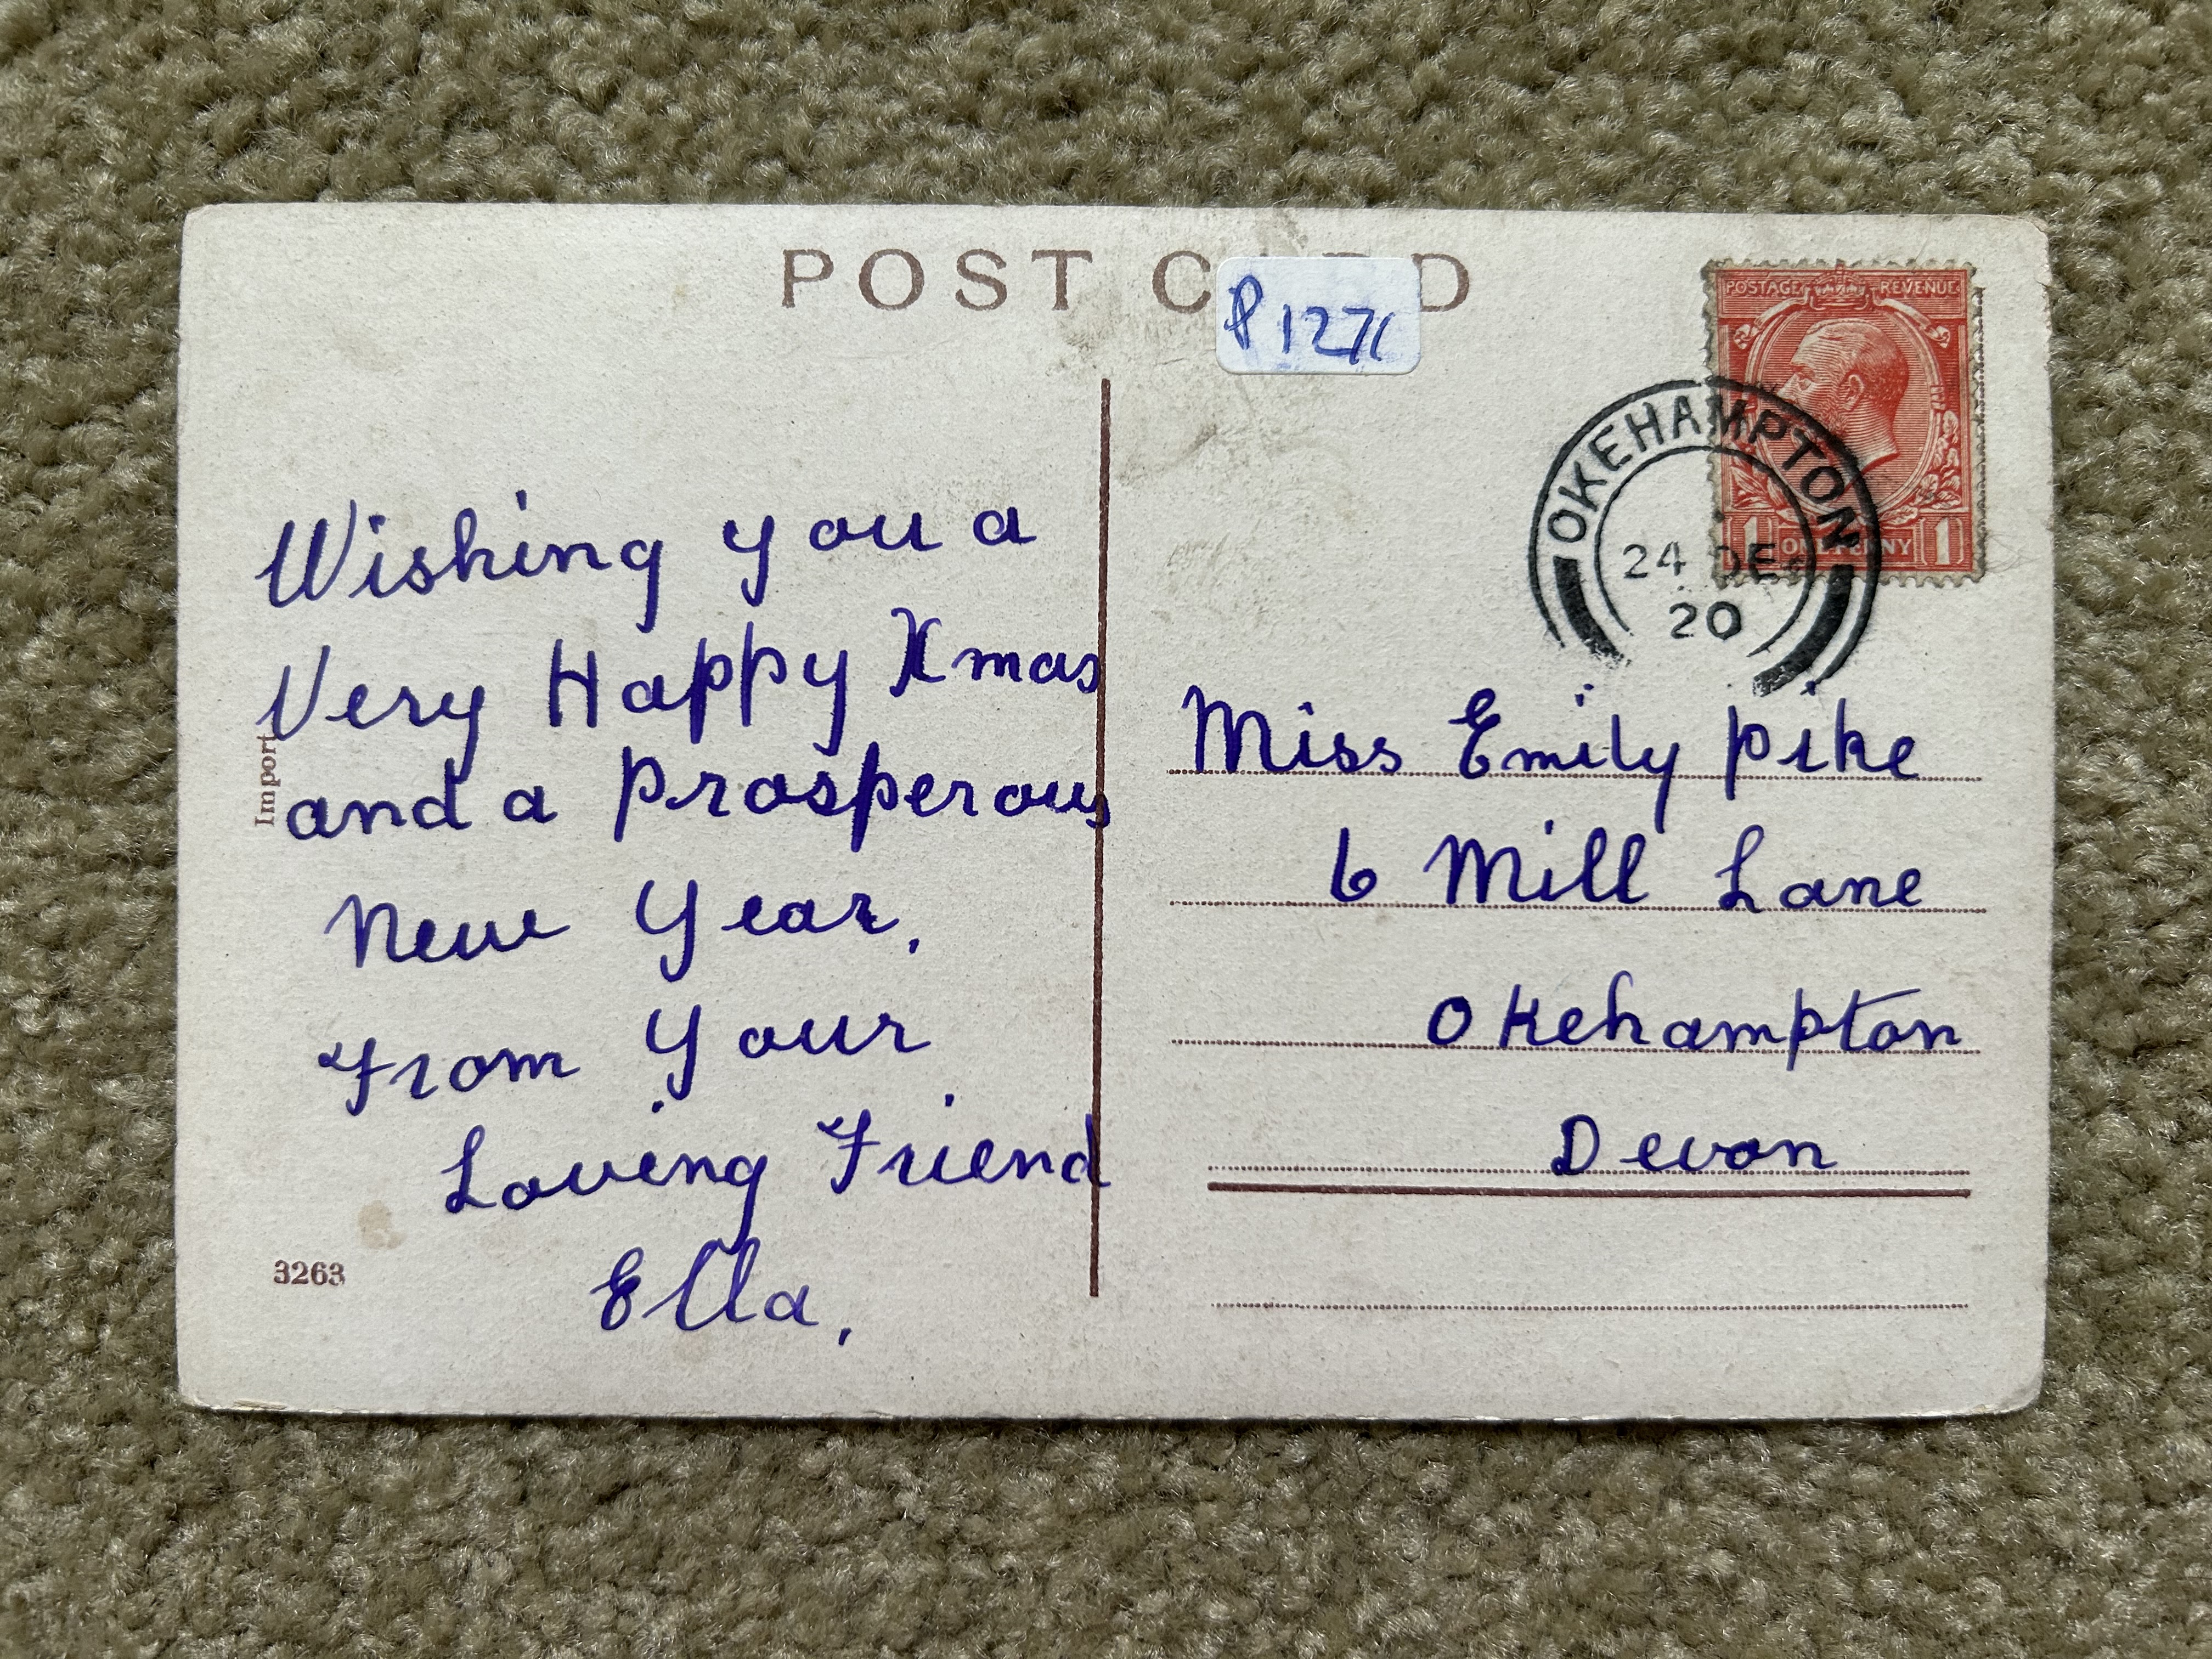 POST CARD
P1271
POSTAGE REVENUE
1 ONE PENNY 1
OKEHAMPTON
24 DE
20
Wishing you a
Very Happy Xmas
and a Prosperous
New Year,
From Your
Loving Friend
Ella,
Import
3263
Miss Emily Pike
6 Mill Lane
Okehampton
Devon